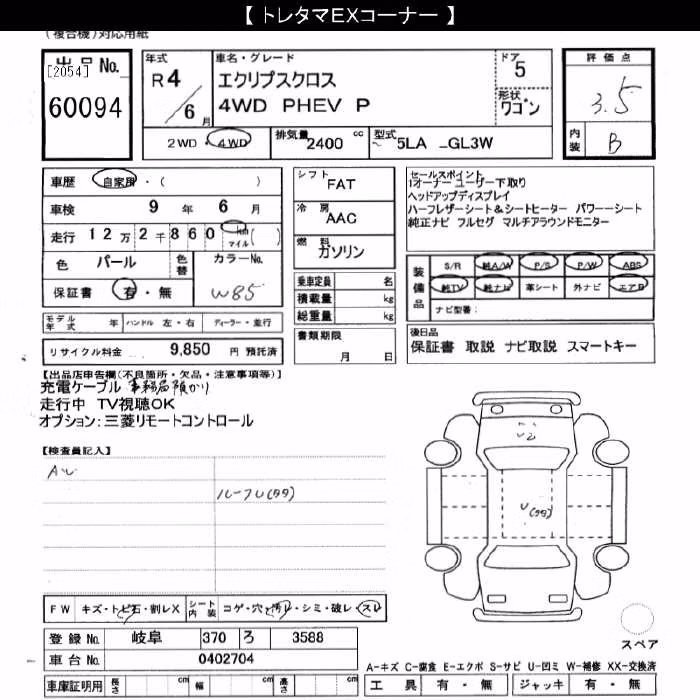 【 トレタマEXコーナー 】
(複合機)対応用紙
出品No.
[2054]
60094
年式
R4/6月
車名・グレード
エクリプスクロス
4WD PHEV P
ドア
5
形状
ワゴン
評価点
3.5
内装
B
2WD・4WD
排気量 2400 cc
型式 5LA -GL3W
車歴 自家用・( )
車検 9年 6月
走行 12万2千860 km マイル ( )
色 パール
色替
カラーNo.
W85
保証書 有・無
シフト
FAT
冷房
AAC
燃料
ガソリン
乗車定員 名
積載量 kg
総重量 kg
セールスポイント
1オーナー ユーザー下取り
ヘッドアップディスプレイ
ハーフレザーシート&シートヒーター パワーシート
純正ナビ フルセグ マルチアラウンドモニター
装備品
S/R 純A/W P/S P/W ABS
純TV 純ナビ 革シート 外ナビ エアB
ナビ型番:
モデル年式 年 ハンドル 左・右 ディーラー・並行
リサイクル料金 9,850 円 預託済
書類期限
月 日
後日品
保証書 取説 ナビ取説 スマートキー
【出品店申告欄(不良箇所・欠品・注意事項等)】
充電ケーブル 事務局預かり
走行中 TV視聴OK
オプション:三菱リモートコントロール
【検査員記入】
AU
ルーフU(タタ)
U2
U(タタ)
FW キズ・トビ石・割レX
シート内装 コゲ・穴・汚レ・シミ・破レ・スレ
登録No. 岐阜 370 ろ 3588
車台No. 0402704
車庫証明用 長さ cm 幅 cm 高さ cm
スペア
A-キズ C-腐食 E-エクボ S-サビ U-凹ミ W-補修 XX-交換済
工具 有・無 ジャッキ 有・無